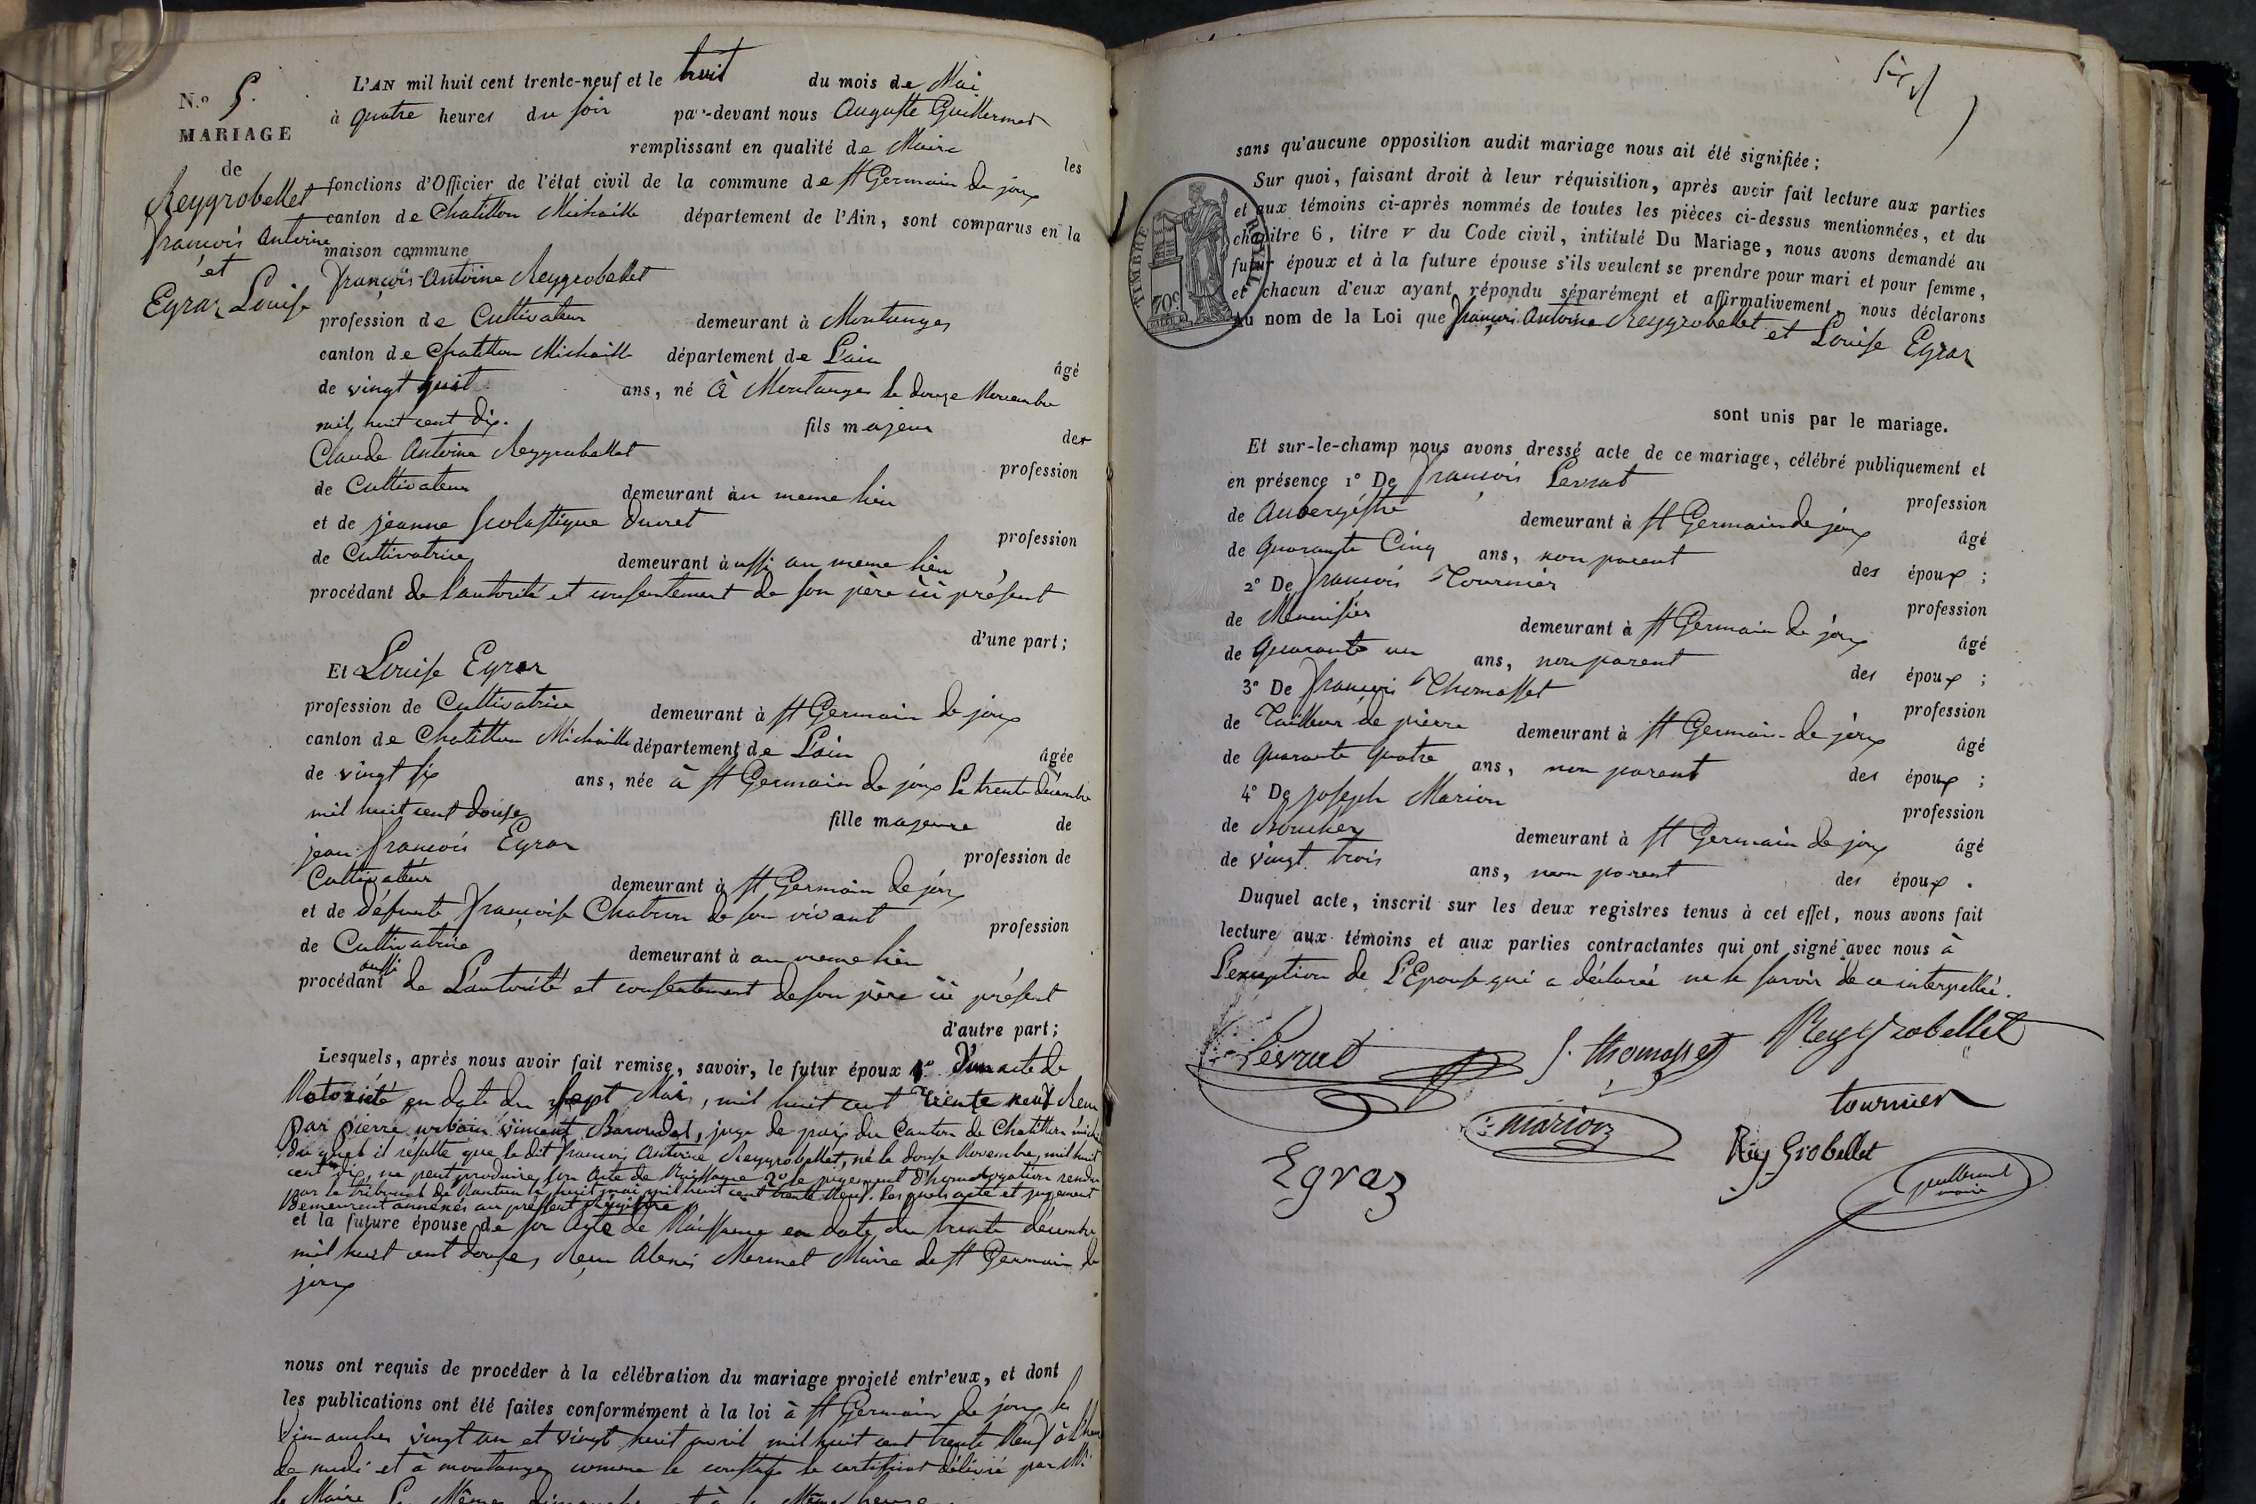 N.º 5.
MARIAGE
de
Reygrobellet
françois Antoine
et
Egraz Louise
L'AN mil huit cent trente-neuf et le huit du mois de Mai
à quatre heures du soir par-devant nous Auguste Guillermet
remplissant en qualité de Maire les
fonctions d'Officier de l'état civil de la commune de St Germain de joux
canton de Chatillon Michaille département de l'Ain, sont comparus en la
maison commune
françois Antoine Reygrobellet
profession de Cultivateur demeurant à Montanges
canton de Chatillon Michaille département de L'ain âgé
de vingt huit ans, né à Montanges le douze Novembre
mil huit cent dix. fils majeur des
Claude Antoine Reygrobellet profession
de Cultivateur demeurant au meme lieu
et de jeanne Scolastique Ducret profession
de Cultivatrice demeurant aussi au meme lieu
procédant de l'autorité et consentement de son père ici présent
d'une part;
Et Louise Egraz
profession de Cultivatrice demeurant à St Germain de joux
canton de Chatillon Michaille département de L'ain âgée
de vingt six ans, née à St Germain de joux Le trente décembre
mil huit cent douze fille majeure de
jean françois Egraz profession de
Cultivateur demeurant à St Germain de joux
et de défunte françoise Chatron de son vivant profession
de Cultivatrice demeurant à au meme lieu
procédant aussi de L'autorité et consentement de son père ici présent
d'autre part;
Lesquels, après nous avoir fait remise, savoir, le futur époux 1º D'un acte de
Notoriété en date du sept Mai, mil huit cent Trente neuf Recu
par pierre urbain vincent Baroudel, juge de paix du Canton de Chatillon
du quel il résulte que le dit françois Antoine Reygrobellet, né le douze Novembre, mil huit
cent dix, ne peut produire son Acte de Naissance 2º le jugement d'homologation rendu
par le tribunal de Nantua le huit mai mil huit cent trente neuf. Lesquels acte et jugement
Demeurent annexés au présent Régistre
et la future épouse de son Acte de Naissance en date du trente décembre
mil huit cent douze, Recu Alexis Mermet Maire de St Germain de
joux
nous ont requis de procéder à la célébration du mariage projeté entr'eux, et dont
les publications ont été faites conformément à la loi à St Germain de joux les
Dimanches vingt un et vingt huit avril mil huit cent trente Neuf à l'heure
de midi et à montanges comme le constate le certificat délivré par Mr
le Maire Les Mêmes dimanches et à la Même heure
sans qu'aucune opposition audit mariage nous ait été signifiée;
Sur quoi, faisant droit à leur réquisition, après avoir fait lecture aux parties
et aux témoins ci-après nommés de toutes les pièces ci-dessus mentionnées, et du
chapitre 6, titre v du Code civil, intitulé Du Mariage, nous avons demandé au
futur époux et à la future épouse s'ils veulent se prendre pour mari et pour femme,
et chacun d'eux ayant répondu séparément et affirmativement, nous déclarons
Au nom de la Loi que françois Antoine Reygrobellet et Louise Egraz
TIMBRE ROYAL
70c
sont unis par le mariage.
Et sur-le-champ nous avons dressé acte de ce mariage, célébré publiquement et
en présence 1º De françois Levrat profession
de Aubergiste demeurant à St Germain de joux âgé
de quarante Cinq ans, non parent des époux;
2º De françois Tournier profession
de Menuisier demeurant à St Germain de joux âgé
de quarante un ans, non parent des époux;
3º De françois Thomasset profession
de Tailleur de pierre demeurant à St Germain de joux âgé
de quarante quatre ans, non parent des époux;
4º De joseph Marion profession
de Boucher demeurant à St Germain de joux âgé
de vingt trois ans, non parent des époux.
Duquel acte, inscrit sur les deux registres tenus à cet effet, nous avons fait
lecture aux témoins et aux parties contractantes qui ont signé avec nous à
L'exeption de L'Epouse qui a déclarée ne le savoir de ce interpellée.
Levrat f. thomasset Reygrobellet
marion tournier
Egraz Rey Grobellet
Guillermet
maire